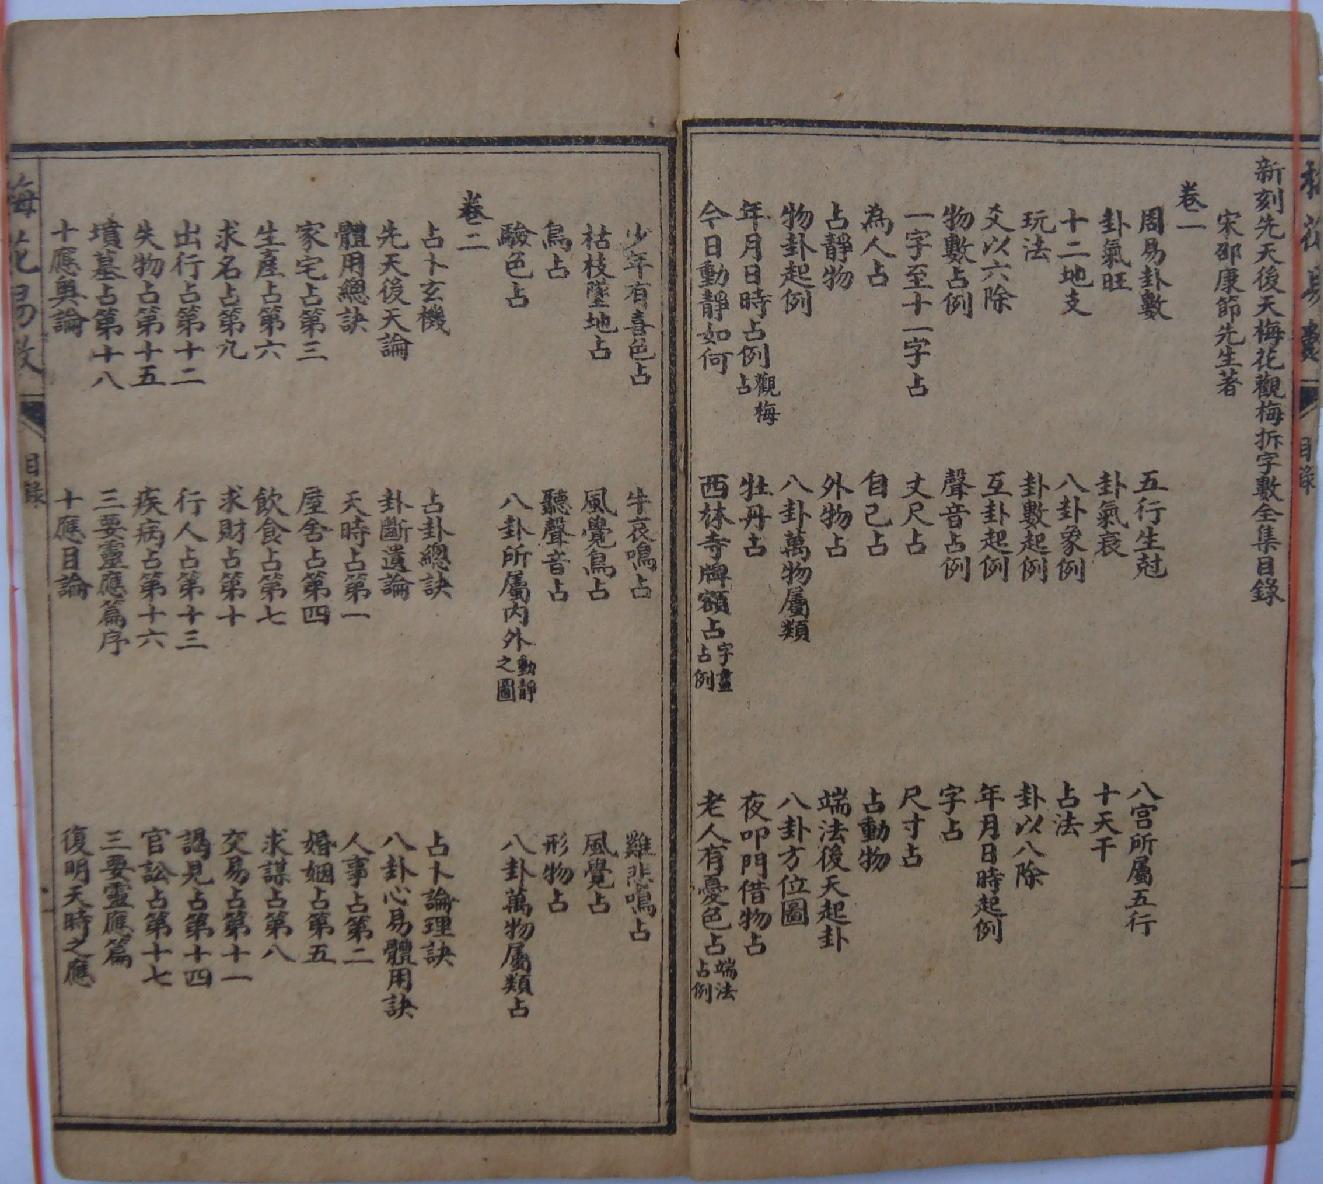 新刻先天後天梅花觀梅拆字數全集目錄
宋邵康節先生著
卷一
周易卦數 五行生尅 八宮所屬五行
卦氣旺 卦氣衰 十天干
十二地支 八卦象例 占法
玩法 卦數起例 卦以八除
爻以六除 互卦起例 年月日時起例
物數占例 聲音占例 字占
一字至十一字占 丈尺占 尺寸占
為人占 自己占 占動物
占靜物 外物占 端法後天起卦
物卦起例 八卦萬物屬類 八卦方位圖
年月日時占例觀梅占 牡丹占 夜叩門借物占
今日動靜如何 西林寺牌額占字畫占例 老人有憂色占端法占例
少年有喜色占 牛哀鳴占 雞悲鳴占
枯枝墜地占 風覺鳥占 風覺占
鳥占 聽聲音占 形物占
驗色占 八卦所屬內外動靜之圖 八卦萬物屬類占
卷二
占卜玄機 占卦總訣 占卜論理訣
先天後天論 卦斷遺論 八卦心易體用訣
體用總訣 天時占第一 人事占第二
家宅占第三 屋舍占第四 婚姻占第五
生產占第六 飲食占第七 求謀占第八
求名占第九 求財占第十 交易占第十一
出行占第十二 行人占第十三 謁見占第十四
失物占第十五 疾病占第十六 官訟占第十七
墳墓占第十八 三要靈應篇序 三要靈應篇
十應奧論 十應目論 復明天時之應
梅花易數 目錄